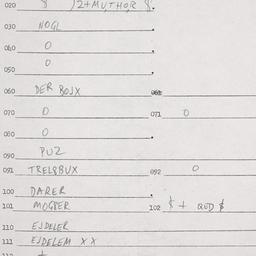 020 8 )2+MUTHOR 8.
030 NOGL
040 0
050 0
060 DER BOJX 061
070 0 071 0
080 0
090 PUZ
091 TRELQBUX 092 0
100 DARER
101 MOGBER 102 $ + QUD $
110 EJDELER
111 EJDELEM XX
112 +